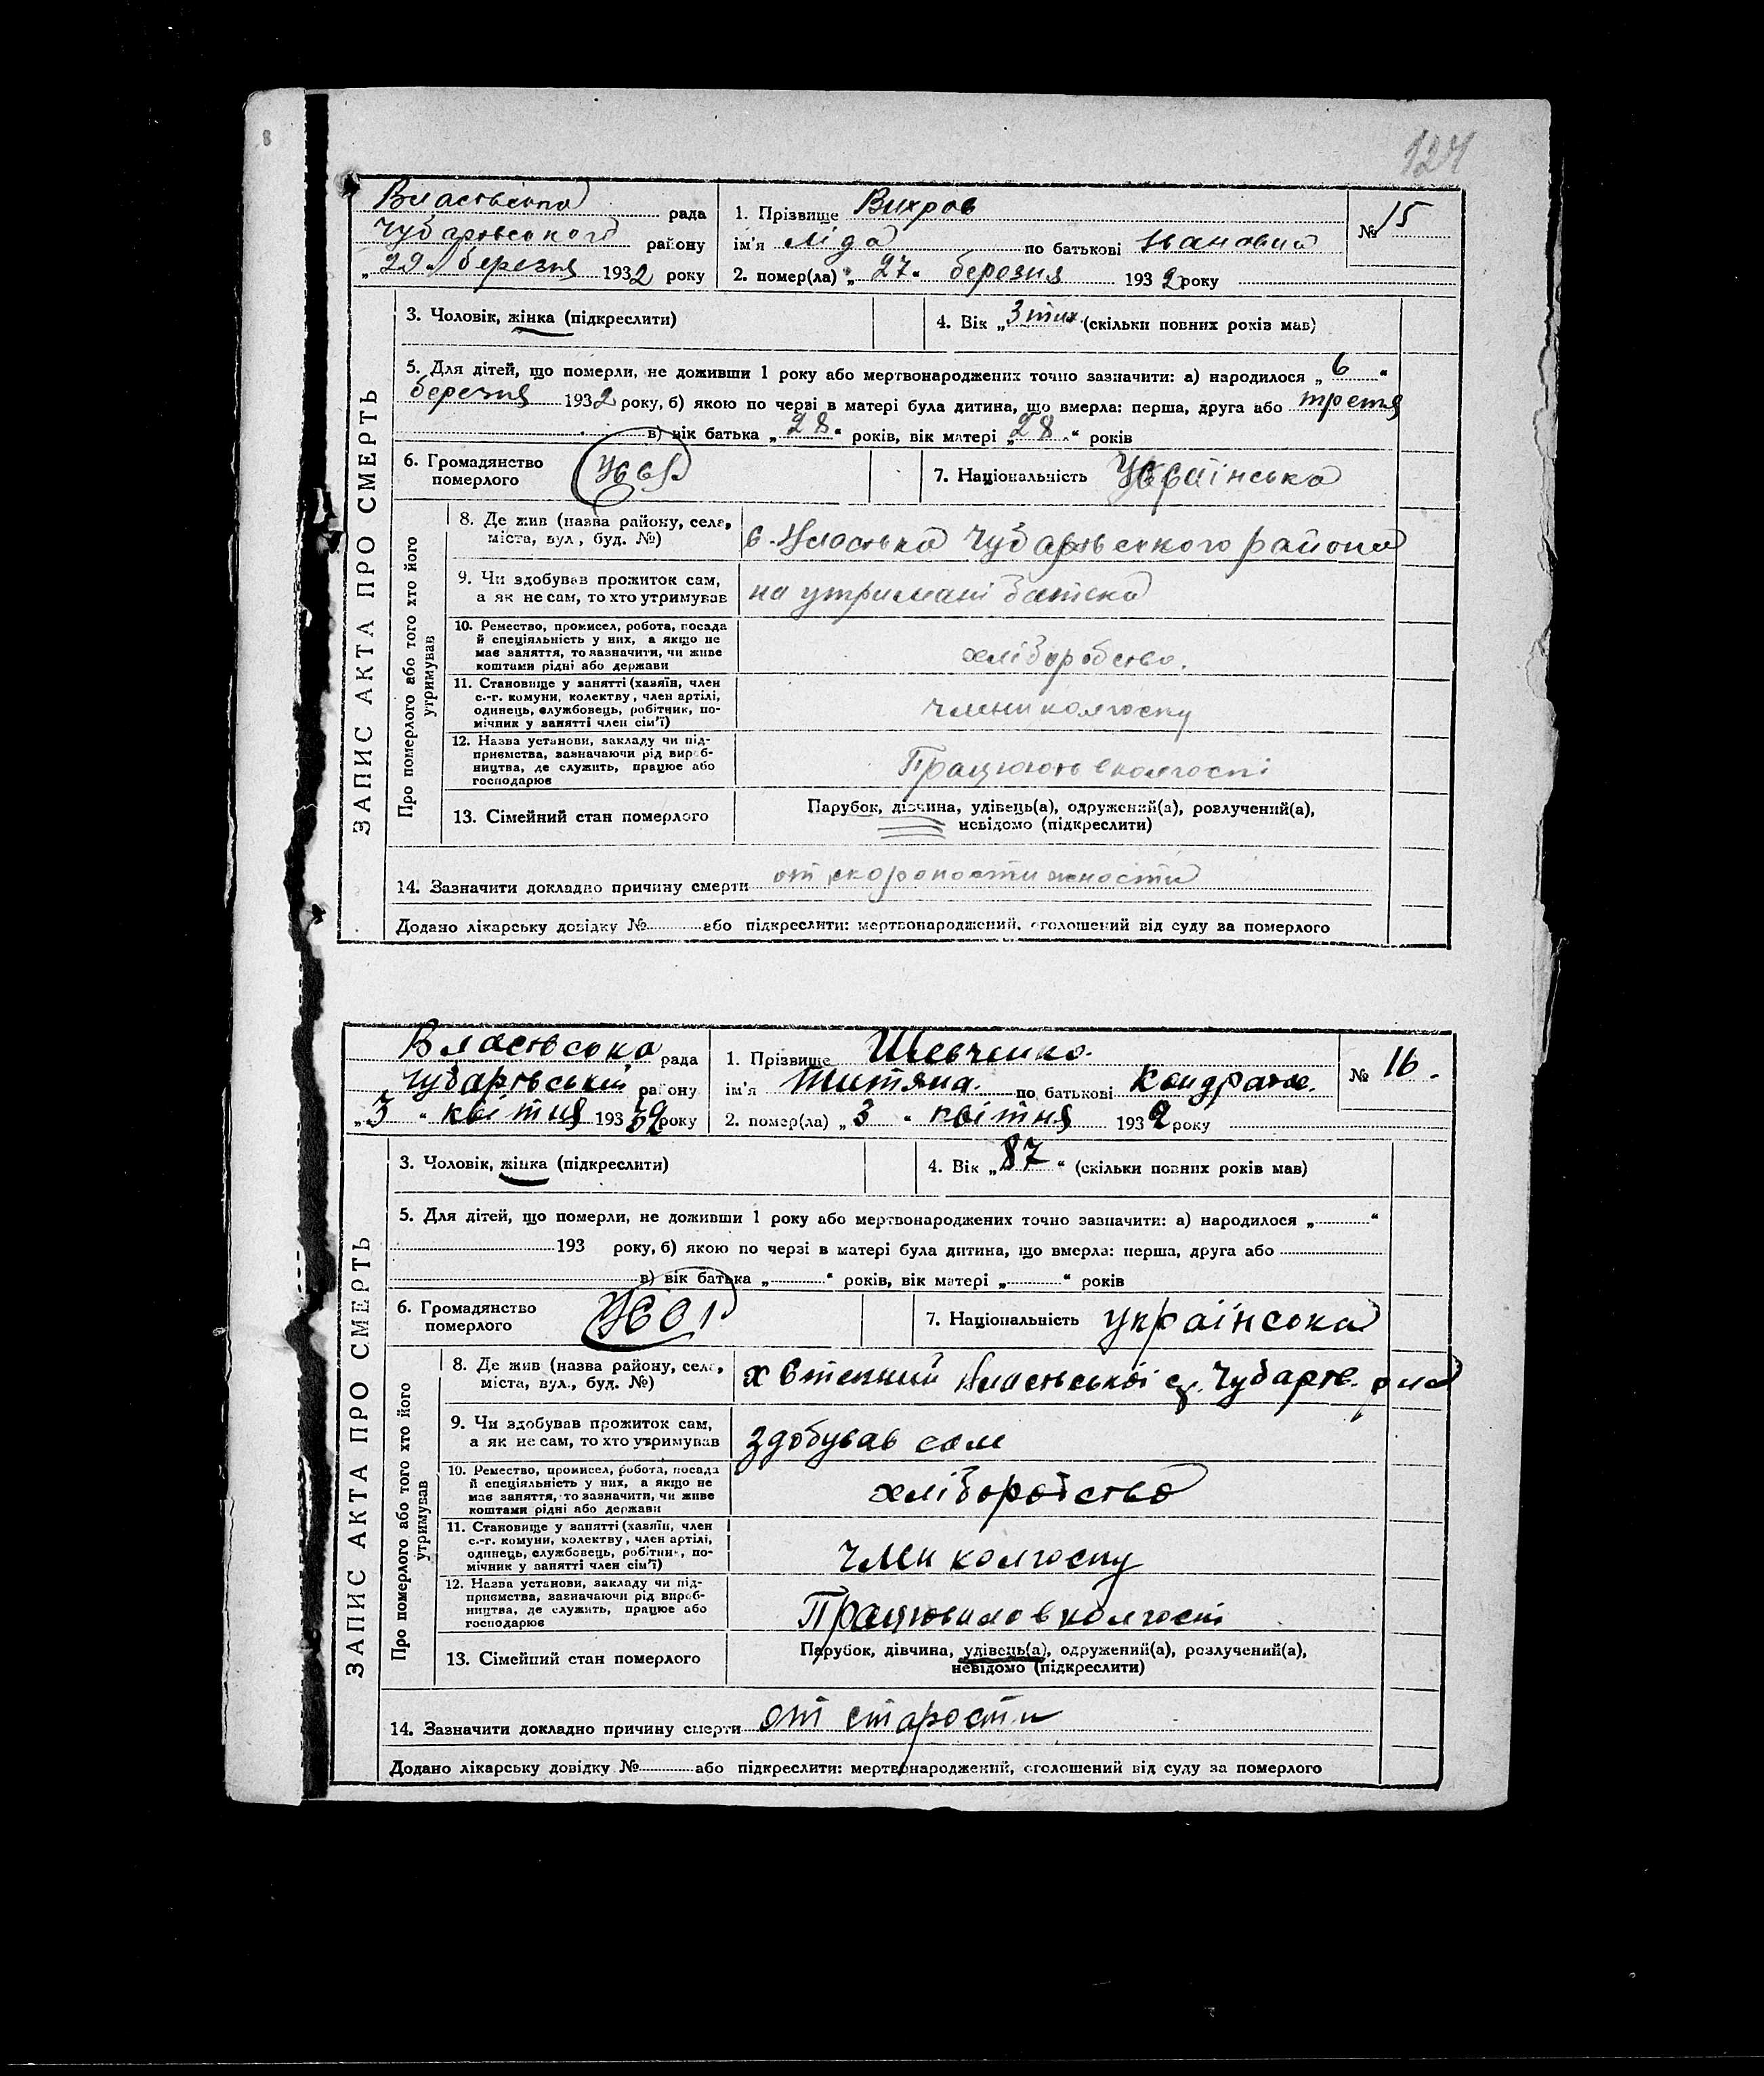 8
124
рада 1. Прізвище Вихров № 15
Чубарівського району ім'я Ліда по батькові Івановна
„29“ березня 1932 року 2. помер(ла) „27“ березня 1932 року
ЗАПИС АКТА ПРО СМЕРТЬ
3. Чоловік, жінка (підкреслити) 4. Вік „3 тиж. (скільки повних років мав)
5. Для дітей, що померли, не доживши 1 року або мертвонароджених точно зазначити: а) народилося „6“
березня 1932 року, б) якою по черзі в матері була дитина, що вмерла: перша, друга або третя
в) вік батька „28“ років, вік матері „28“ років
6. Громадянство
померлого
7. Національність Українська
Про померлого або того хто його
утримував
8. Де жив (назва району, села,
міста, вул., буд. №)
Чубарівського района
9. Чи здобував прожиток сам,
а як не сам, то хто утримував
на утримані батька
10. Ремество, промисел, робота, посада
й спеціяльність у них, а якщо не
має заняття, то зазначити, чи живе
коштами рідні або держави
хліборобство.
11. Становище у занятті (хазяїн, член
с.-г. комуни, колектву, член артілі,
одинець, службовець, робітник, по-
мічник у занятті член сім'ї)
члени колгоспу
12. Назва установи, закладу чи під-
приємства, зазначаючи рід вироб-
ництва, де служить, працює або
господарює
Працюють в колгоспі
13. Сімейний стан померлого
Парубок, дівчина, удівець(а), одружений(а), розлучений(а),
невідомо (підкреслити)
14. Зазначити докладно причину смерти от скоропостижности
Додано лікарську довідку № або підкреслити: мертвонароджений, оголошений від суду за померлого
Власівська рада 1. Прізвище Шевченко. № 16.
Чубарівський району ім'я Титяна. по батькові Кондратов.
„3“ квітня 193 32 року 2. помер(ла) „3“ квітня 1932 року
ЗАПИС АКТА ПРО СМЕРТЬ
3. Чоловік, жінка (підкреслити) 4. Вік „87“ (скільки повних років мав)
5. Для дітей, що померли, не доживши 1 року або мертвонароджених точно зазначити: а) народилося „ “
193 року, б) якою по черзі в матері була дитина, що вмерла: перша, друга або
в) вік батька „ “ років, вік матері „ “ років
6. Громадянство
померлого
7. Національність українська
Про померлого або того хто його
утримував
8. Де жив (назва району, села,
міста, вул., буд. №)
х Степний Власівської с/. Чубарів. р-на
9. Чи здобував прожиток сам,
а як не сам, то хто утримував
здобував сам
10. Ремество, промисел, робота, посада
й спеціяльність у них, а якщо не
має заняття, то зазначити, чи живе
коштами рідні або держави
хліборобство
11. Становище у занятті (хазяїн, член
с.-г. комуни, колектву, член артілі,
одинець, службовець, робітник, по-
мічник у занятті член сім'ї)
член колгоспу
12. Назва установи, закладу чи під-
приємства, зазначаючи рід вироб-
ництва, де служить, працює або
господарює
в колгоспі
13. Сімейний стан померлого
Парубок, дівчина, удівець(а), одружений(а), розлучений(а),
невідомо (підкреслити)
14. Зазначити докладно причину смерти от старости
Додано лікарську довідку № або підкреслити: мертвонароджений, оголошений від суду за померлого